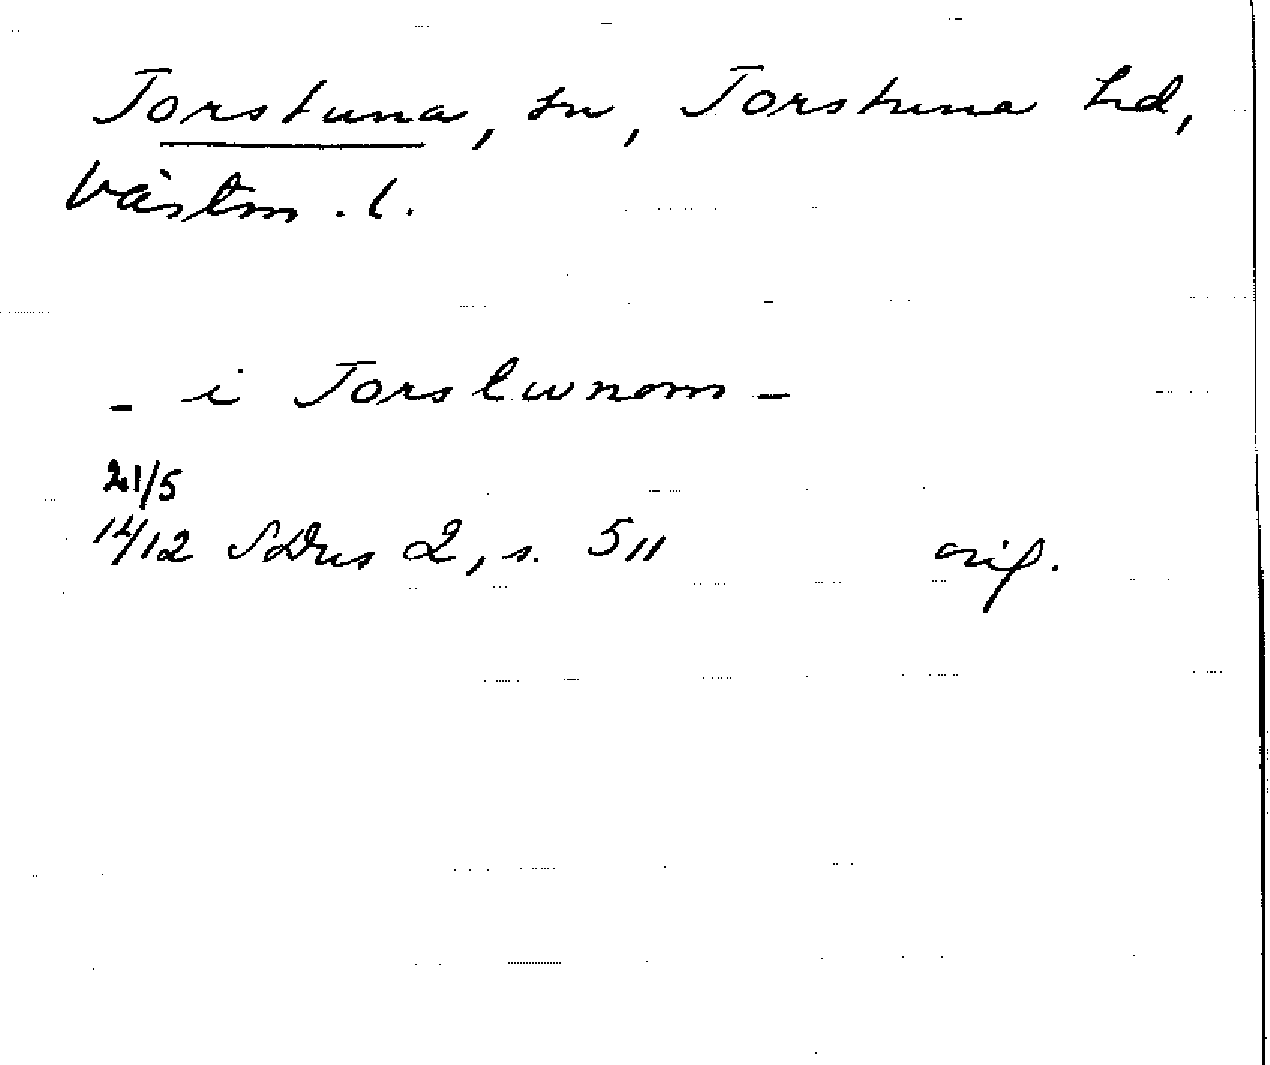 Torstuna, sn, Torstuna hd,
Västm. l.
- i Torslwnom -
21/5
14/12 SDns 2, s. 511 orig.